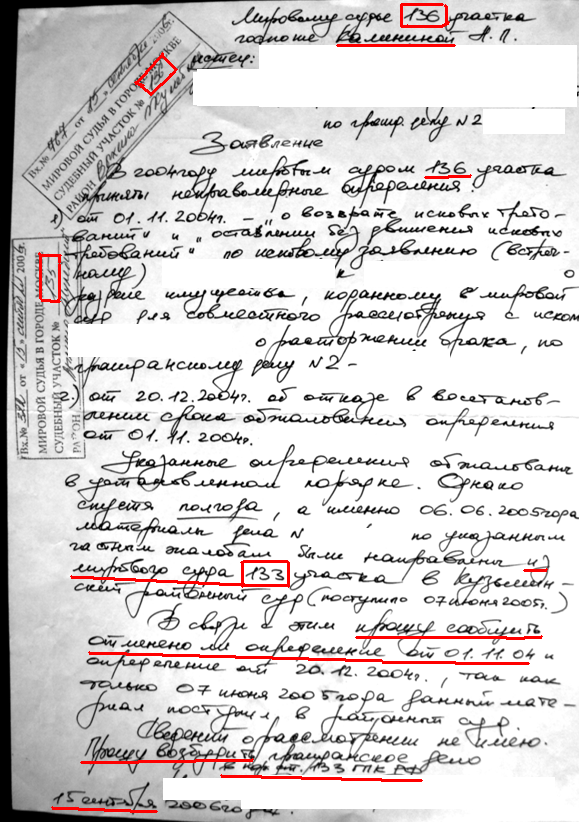 Мировому судье 136 участка
госпоже Калининой Н. П.
истец:
по гражд. делу N2
Вх.№ от «15» сентября 2006г.
МИРОВОЙ СУДЬЯ В ГОРОДЕ МОСКВЕ
СУДЕБНЫЙ УЧАСТОК № 136
РАЙОН
Заявление
В 2004году мировым судом 136 участка
приняты неправомерные определения:
1) от 01.11.2004г. – „о возврате исковых требо-
ваний" и „оставлении без движения исковых
требований" по исковому заявлению (встреч-
ному) к о
разделе имущества, поданному в мировой
суд для совместного рассмотрения с иском
о расторжении брака, по
гражданскому делу N2 –
2. от 20.12.2004г. об отказе в восстанов-
лении срока обжалования определения
от 01.11.2004г.
Вх.№ от «15» сентября 2006г.
МИРОВОЙ СУДЬЯ В ГОРОДЕ МОСКВЕ
СУДЕБНЫЙ УЧАСТОК № 135
РАЙОН
Указанные определения обжалованы
в установленном порядке. Однако
спустя полгода, а именно 06.06.2005года
материалы дела N по указанным
частным жалобам были направлены из
мирового суда 133 участка в Кузьмин-
ский районный суд (поступило 07 июня 2005г.)
В связи с этим прошу сообщить
отменено ли определение от 01.11.04 и
определение от 20.12.2004г., так как
только 07 июня 2005года данный мате-
риал поступил в районный суд.
Сведений о рассмотрении не имею.
Прошу возбудить гражданское дело
в пор. ст. 133 ГПК РФ
15 сентября 2006года.